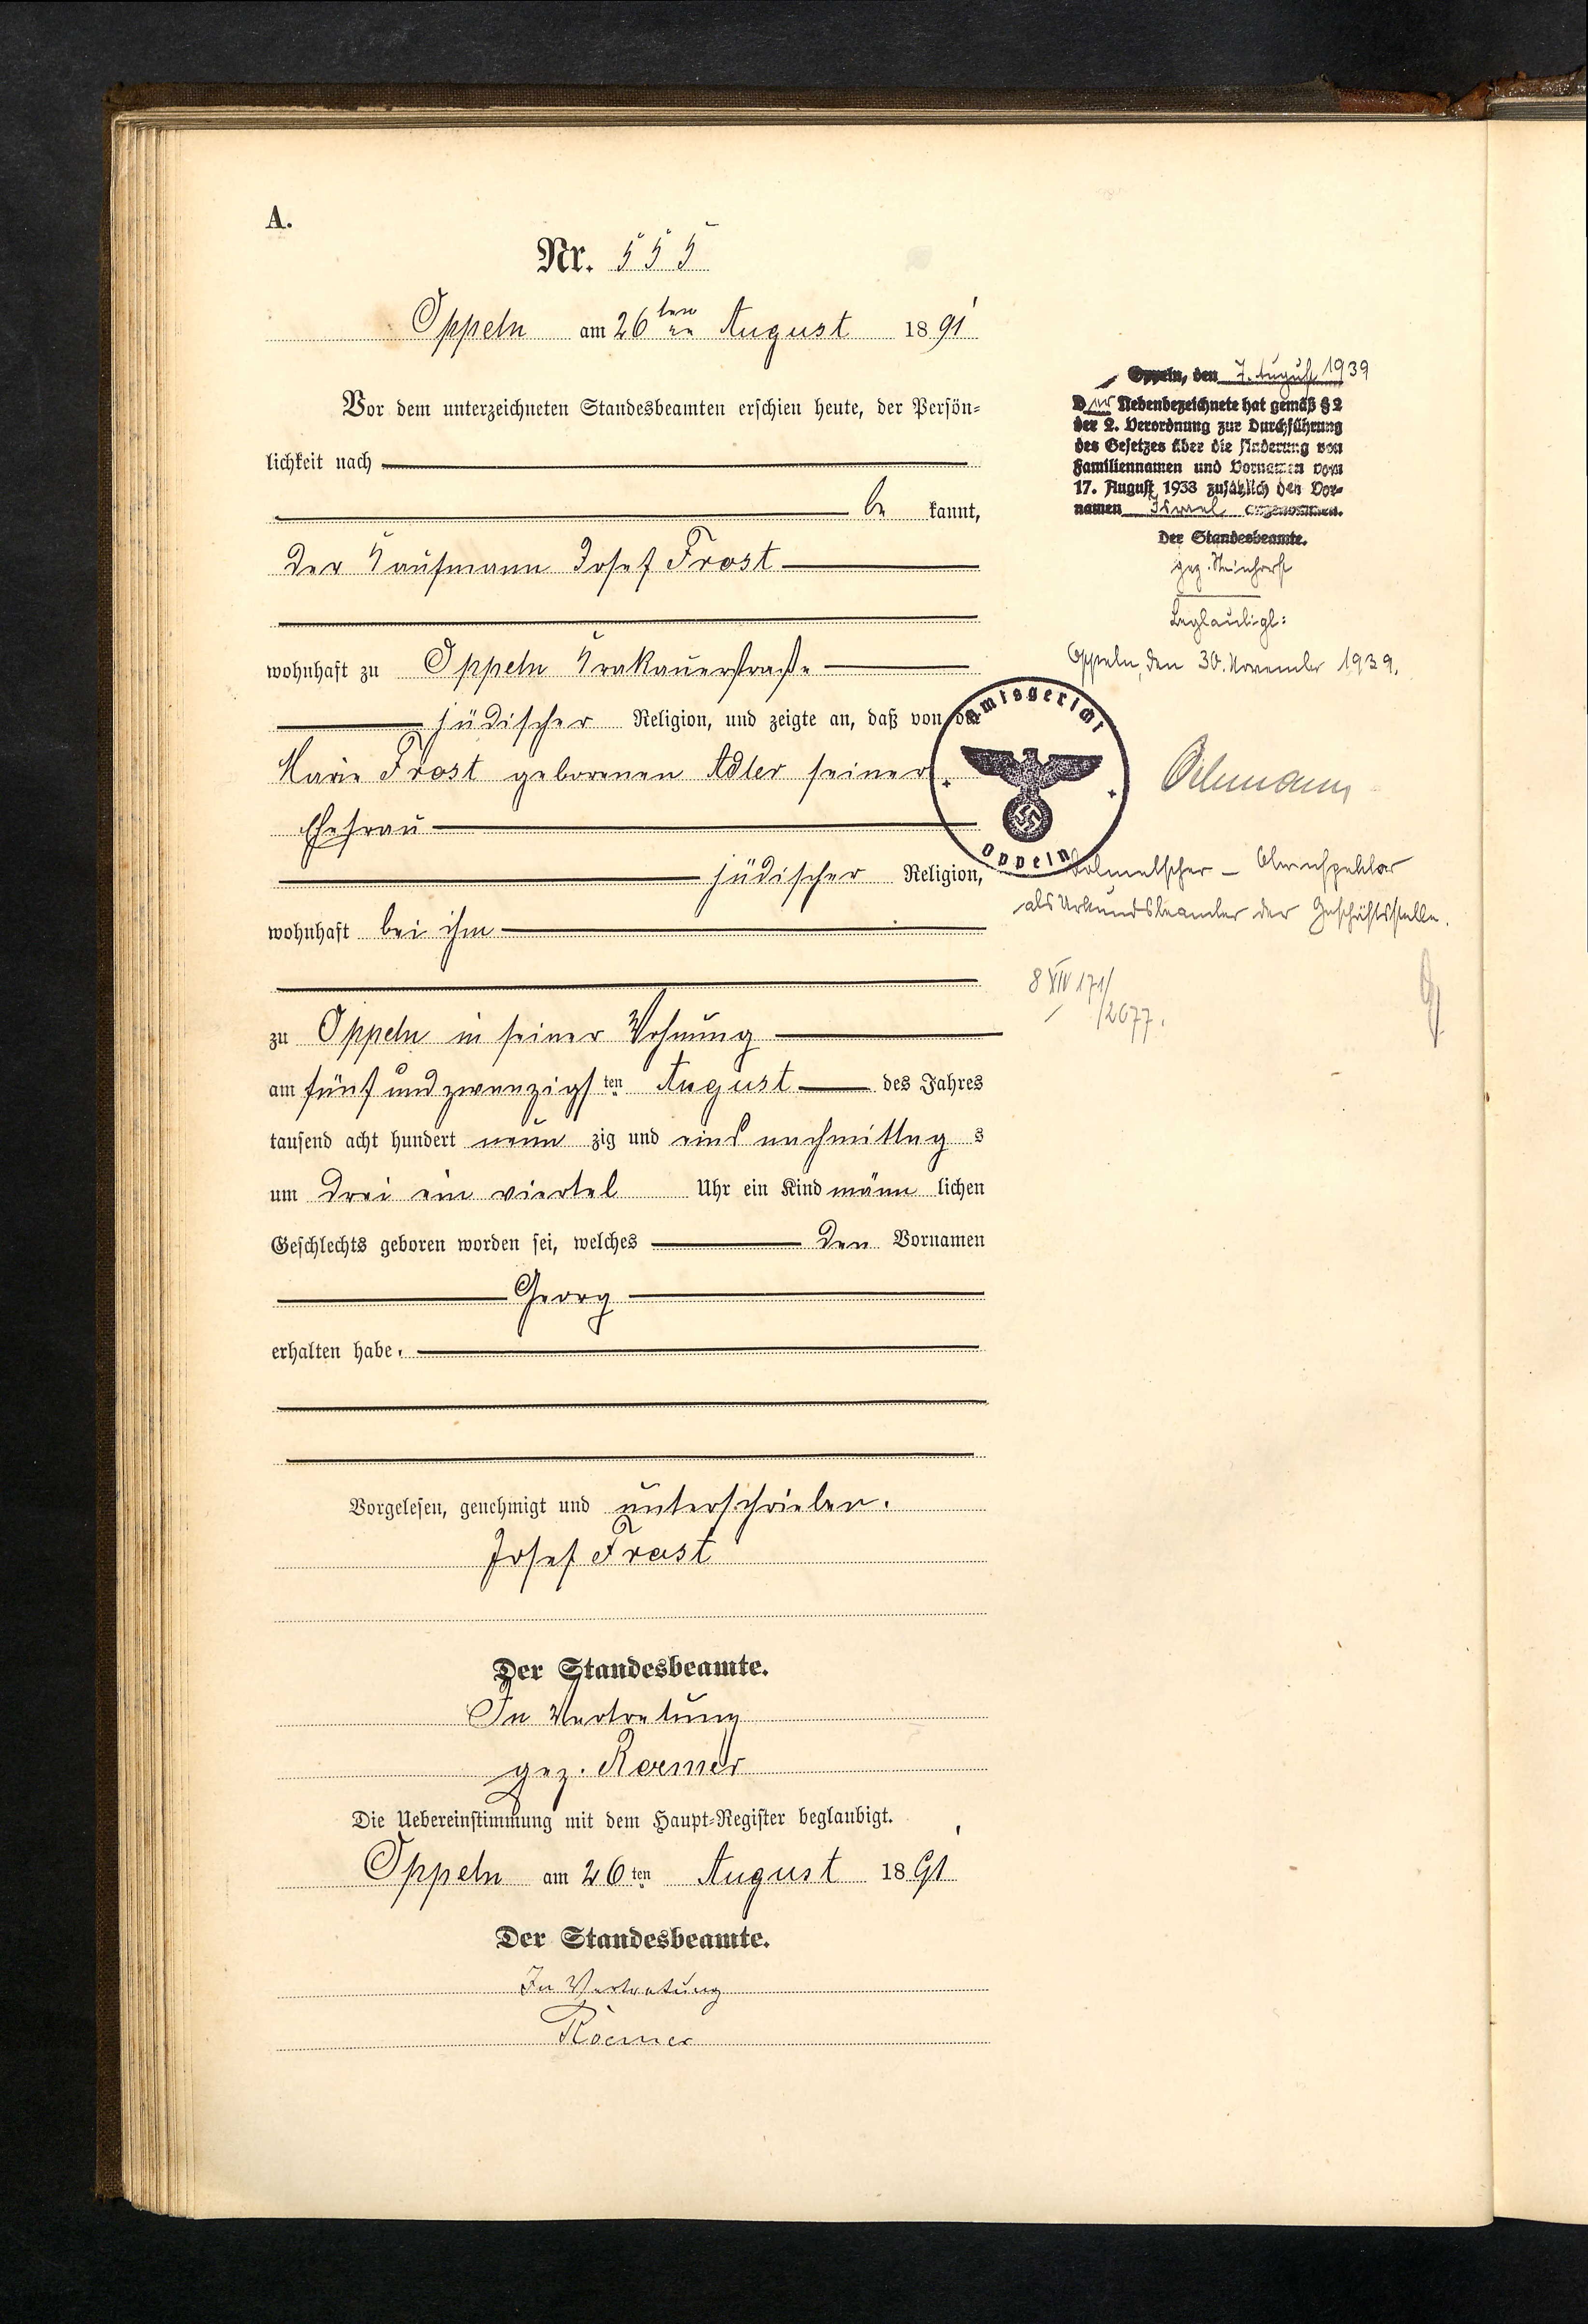 A.
Nr. 555
Oppeln am 26 ten August 1891
Vor dem unterzeichneten Standesbeamten erschien heute, der Persön-
lichkeit nach
be kannt,
der Kaufmann Josef Frost
wohnhaft zu Oppeln Krakauerstraße
jüdischer Religion, und zeigte an, daß von der
Marie Frost geborenen Adler seiner
Ehefrau
jüdischer Religion,
wohnhaft bei ihm
zu Oppeln in seiner Wohnung
am fünf und zwanzigsten August des Jahres
tausend acht hundert neun zig und eins nachmittag s
um drei ein viertel Uhr ein Kind männ lichen
Geschlechts geboren worden sei, welches den Vornamen
Georg
erhalten habe.
Vorgelesen, genehmigt und unterschrieben.
Josef Frost
Der Standesbeamte.
In Vertretung
gez. Roemer
Die Uebereinstimmung mit dem Haupt-Register beglaubigt.
Oppeln am 26 ten August 1891
Der Standesbeamte.
In Vertretung
Roemer
Oppeln, den 7. August 1939
Der Nebenbezeichnete hat gemäß § 2
der 2. Verordnung zur Durchführung
des Gesetzes über die Änderung von
Familiennamen und Vornamen vom
17. August 1938 zusätzlich den Vor-
namen Israel angenommen.
Der Standesbeamte.
gez.
Beglaubigt:
Oppeln, den 30. November 1939.
Amtsgericht
Oppeln
Dolmetscher - Oberinspektor
als Urkundsbeamter der Geschäftsstelle.
8 XIV 171/
/2677.